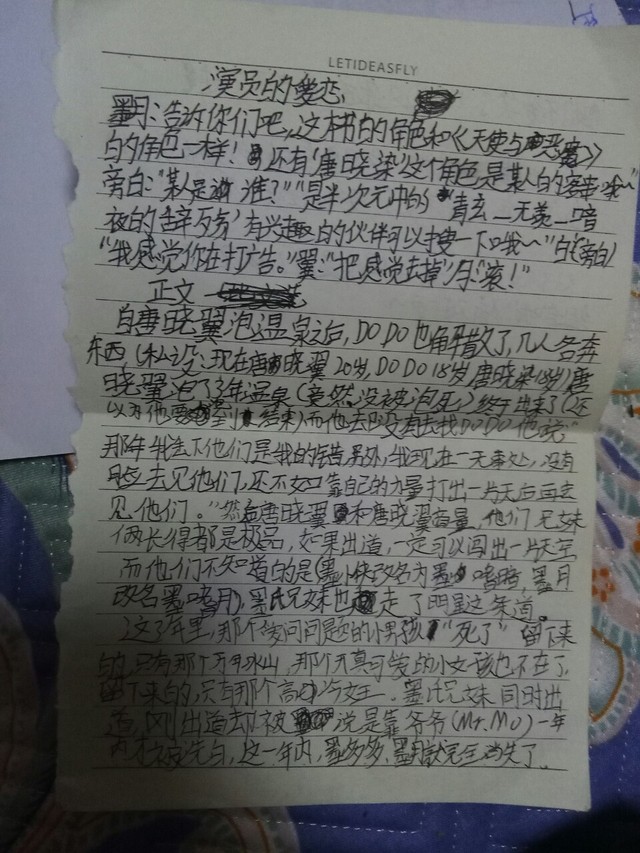 LETIDEASFLY
演员的爱恋
墨月:告诉你们吧,这本书的角色和《天使与恶魔》
的角色一样!还有‘唐晓染’这个角色是某人的客串哦~”
旁白:“某人是谁?”“是半次元中的‘青玄_无羡_暗
夜的辞’有兴趣的伙伴可以搜一下哦~”白(旁白)
“我感觉你在打广告。”墨:“把感觉去掉”月:“滚!”
正文
自唐晓翼泡温泉之后,DODO也解散了,几人各奔
东西(私设:现在唐晓翼20岁,DODO18岁唐晓染18岁)唐
晓翼泡了3年温泉(竟然没被泡死)终于出来了(还
以为他要到结束)而他去却没有去找DODO他说:“
那年我丢下他们是我的错,另外,我现在一无事处,没有
脸去见他们,还不如靠自己的力量打出一片天后再去
见他们。”然后唐晓翼和唐晓翼商量,他们兄妹
俩长得都是极品,如果出道,一定可以闯出一片天空
而他们不知道的是(墨小侠改名为墨暗,墨月
改名墨暗月),墨氏兄妹也走了明星这条道。
这3年里,那个爱问问题的小男孩“死了”留下来
的,只有那个万年冰山,那个天真可爱的小女孩也不在了,
留下来的,只有那个高冷女王。墨氏兄妹同时出
道,刚出道却被说是靠爷爷(Mr.Mo)一年
内才被洗白,这一年内,墨多多、墨月就完全消失了。